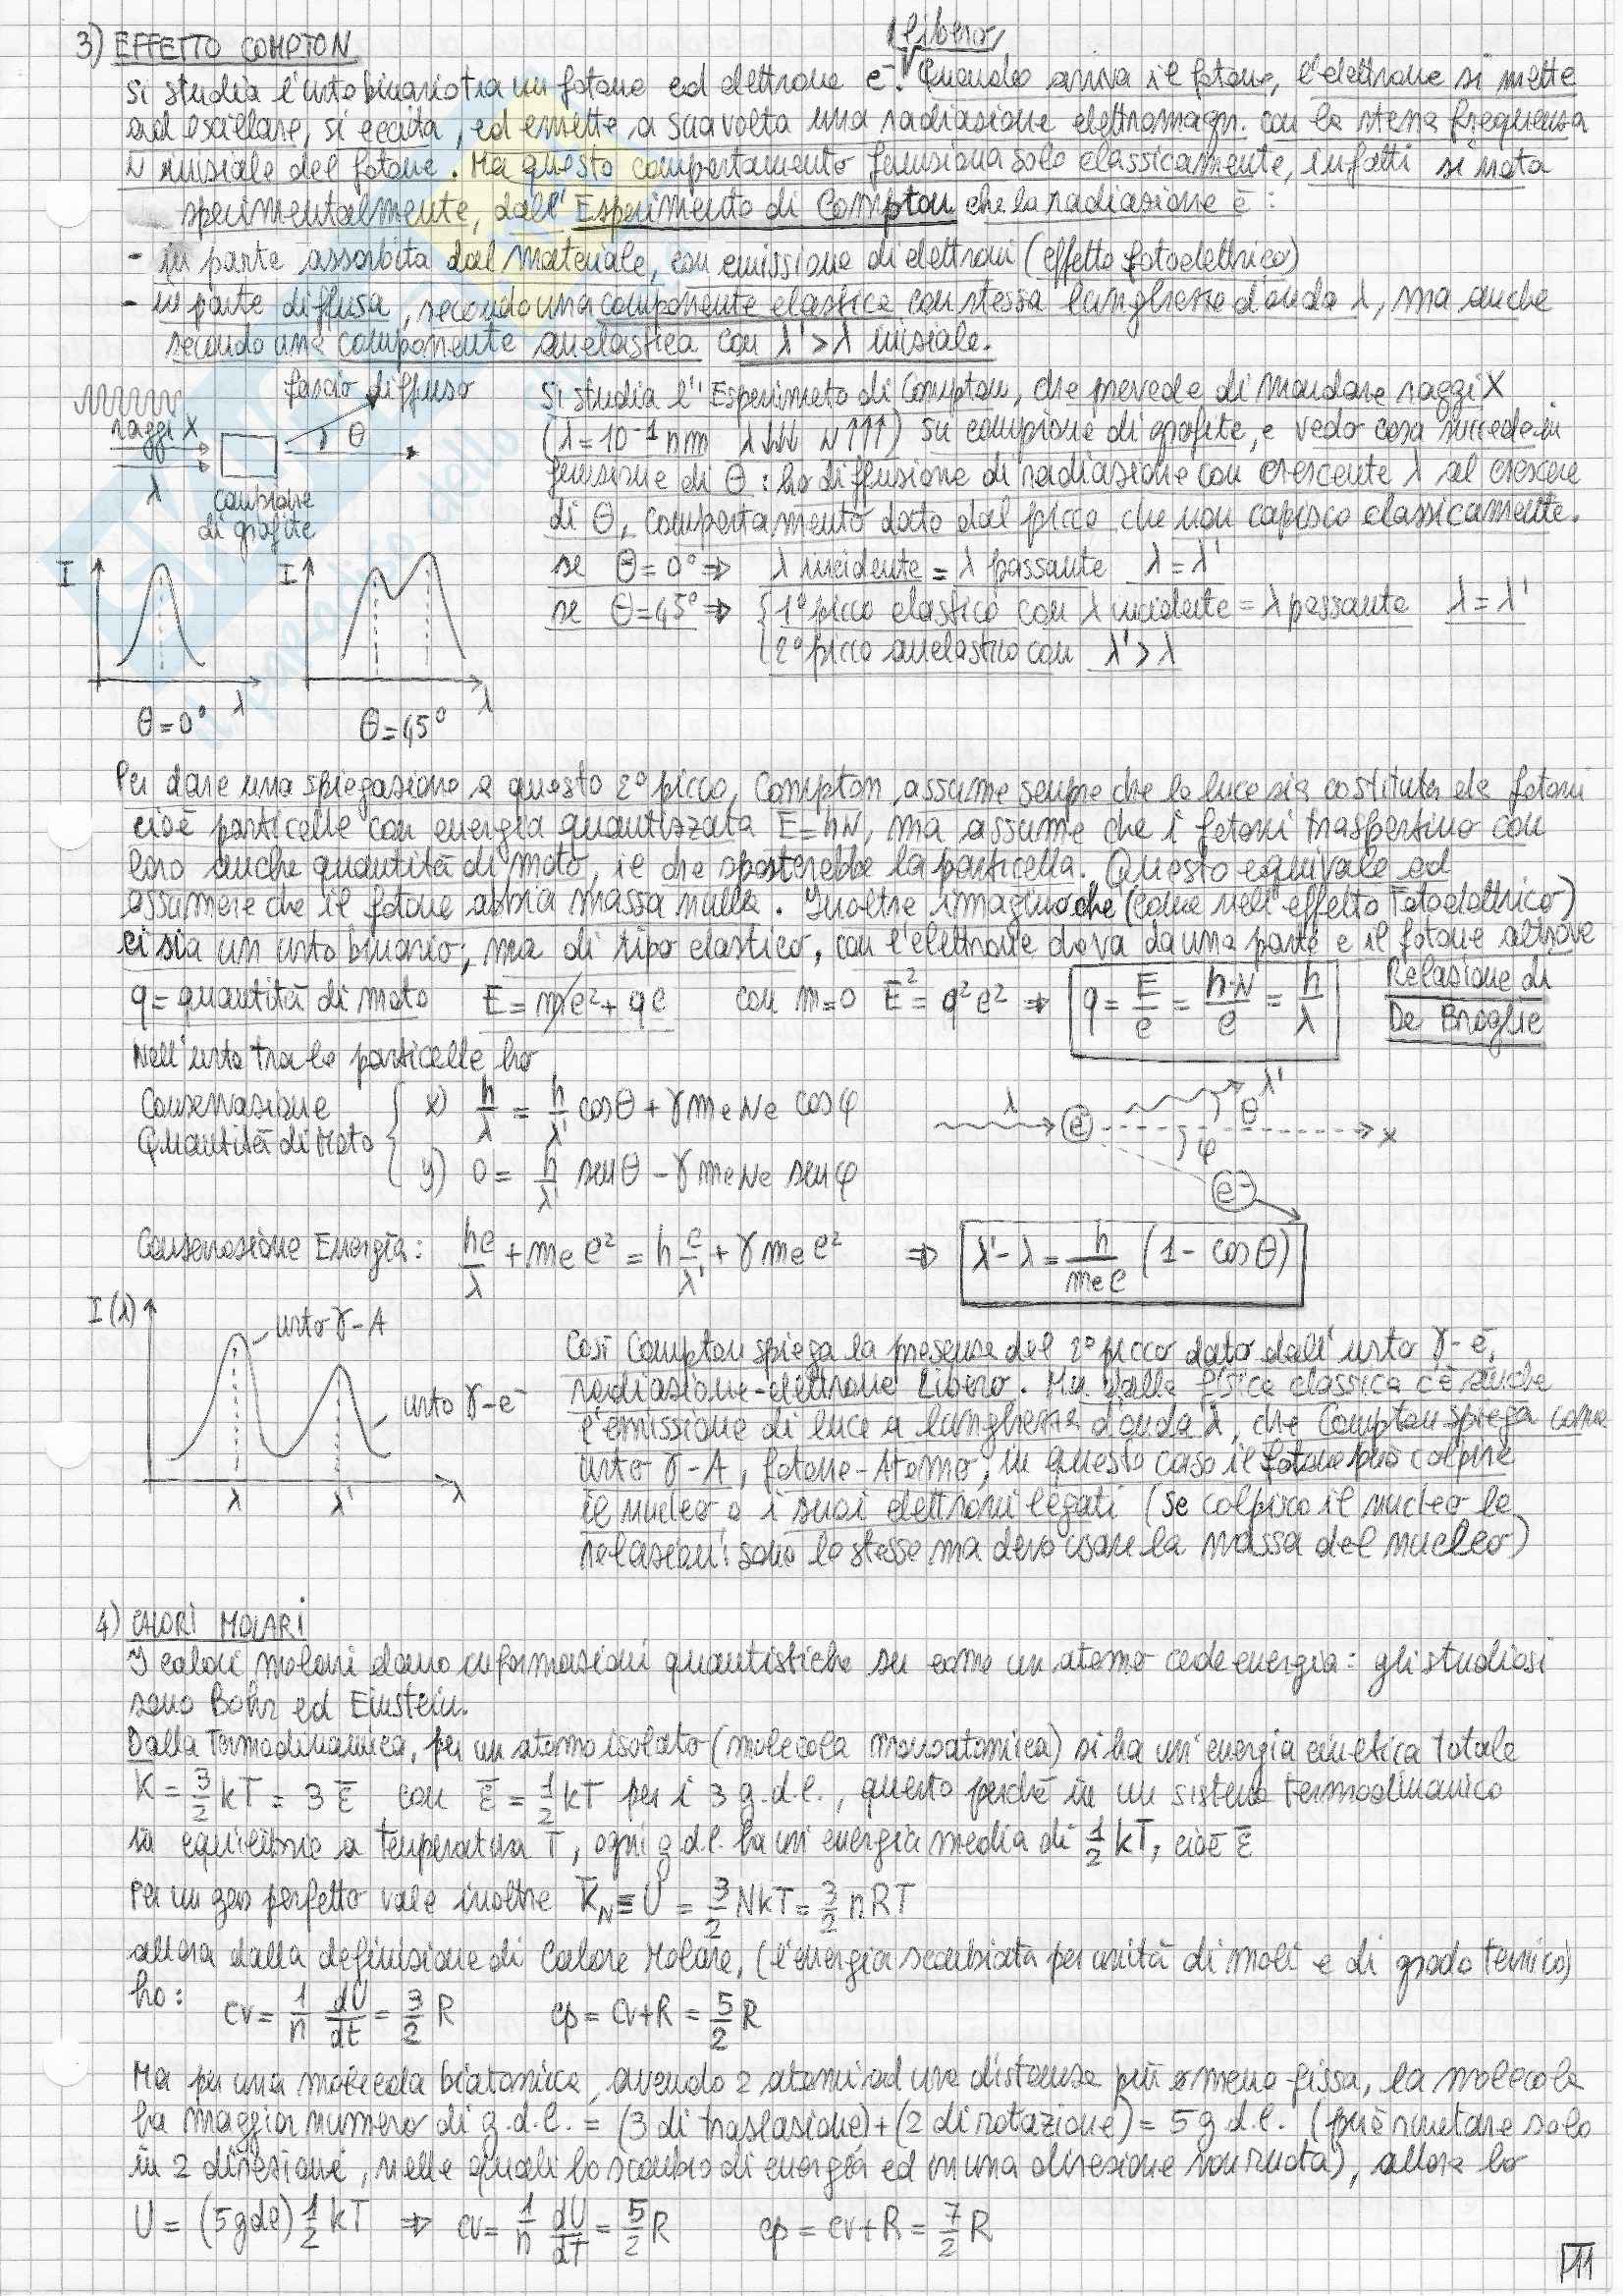 3) EFFETTO COMPTON
libero
Si studia l'urto binario tra un fotone ed elettrone e⁻. Quando arriva il fotone, l'elettrone si mette
ad oscillare, si eccita, ed emette a sua volta una radiazione elettromagn. con la stessa frequenza
ν iniziale del fotone. Ma questo comportamento funziona solo classicamente, infatti si nota
sperimentalmente, dall'Esperimento di Compton che la radiazione è:
- in parte assorbita dal materiale, con emissione di elettroni (effetto fotoelettrico)
- in parte diffusa, secondo una componente elastica con stessa lunghezza d'onda λ, ma anche
secondo una componente anelastica con λ' > λ iniziale.
raggi X
λ
fascio diffuso
θ
campione
di grafite
Si studia l'Esperimeto di Compton, che prevede di mandare raggi X
(λ = 10⁻¹ nm λ↓↓↓ ν↑↑↑) su campione di grafite, e vedo cosa succede in
funzione di θ: ho diffusione di radiazione con crescente λ al crescere
di θ, comportamento dato dal picco che non capisco classicamente.
se θ = 0° ⇒ λ incidente = λ passante λ = λ'
se θ = 45° ⇒ { 1° picco elastico con λ incidente = λ passante λ = λ'
2° picco anelastico con λ' > λ
I
λ
θ = 0°
I
λ
θ = 45°
Per dare una spiegazione a questo 2° picco, Compton assume sempre che la luce sia costituita da fotoni
cioè particelle con energia quantizzata E = hν, ma assume che i fotoni trasportino con
loro anche quantità di moto, il che sposterebbe la particella. Questo equivale ad
assumere che il fotone abbia massa nulla. Inoltre immagino che (come nell'effetto Fotoelettrico)
ci sia un urto binario, ma di tipo elastico, con l'elettrone che va da una parte e il fotone altrove
q = quantità di moto E = mc² + qc con m = 0 E² = q²c² ⇒ q = E/c = h·ν/c = h/λ Relazione di
De Broglie
Nell'urto tra le particelle ho
Conservazione
Quantità di Moto
{ x) h/λ = h/λ' cosθ + γ me ve cosφ
y) 0 = h/λ' senθ - γ me ve senφ
λ
e⁻
λ'
θ
x
φ
e⁻
Conservazione Energia: hc/λ + me c² = h c/λ' + γ me c² ⇒ λ' - λ = h/(me c) (1 - cosθ)
I(λ)
urto γ-A
urto γ-e⁻
λ
λ'
λ
Così Compton spiega la presenza del 2° picco dato dall'urto γ-e⁻,
radiazione-elettrone Libero. Ma dalla fisica classica c'è anche
l'emissione di luce a lunghezza d'onda λ, che Compton spiega come
urto γ-A, fotone-Atomo, in questo caso il fotone può colpire
il nucleo o i suoi elettroni legati (se colpisco il nucleo le
relazioni sono le stesse ma devo usare la massa del nucleo)
4) CALORI MOLARI
I calori molari danno informazioni quantistiche su come un atomo cede energia: gli studiosi
sono Bohr ed Einstein.
Dalla Termodinamica, per un atomo isolato (molecola monoatomica) si ha un'energia cinetica totale
K = 3/2 kT = 3 ε̄ con ε̄ = 1/2 kT per i 3 g.d.l., questo perché in un sistema termodinamico
in equilibrio a temperatura T, ogni g.d.l. ha un'energia media di 1/2 kT, cioè ε̄
Per un gas perfetto vale inoltre K_N ≡ U = 3/2 NkT = 3/2 nRT
allora dalla definizione di Calore Molare, (l'energia scambiata per unità di moli e di grado termico)
ho: cv = 1/n dU/dt = 3/2 R cp = cv + R = 5/2 R
Ma per una molecola biatomica, avendo 2 atomi ad una distanza più o meno fissa, la molecola
ha maggior numero di g.d.l. = (3 di traslazione) + (2 di rotazione) = 5 g.d.l. (può ruotare solo
in 2 direzioni, nelle quali ho scambio di energia ed in una direzione non ruota), allora ho
U = (5 gdl) 1/2 kT ⇒ cv = 1/n dU/dT = 5/2 R cp = cv + R = 7/2 R
11